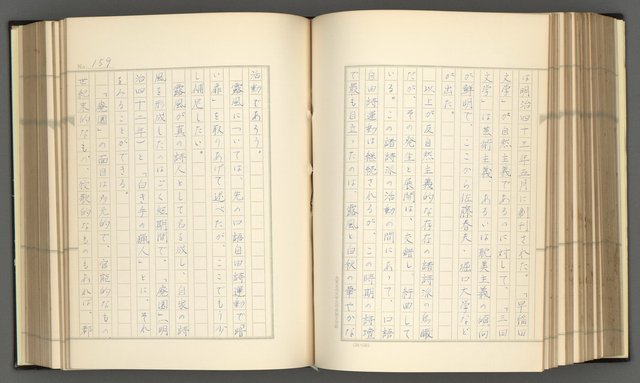 は明治四十三年五月に創刊された。「早稲田
文学」が自然主義であるのに対して、「三田
文学」は芸術主義、あるいは耽美主義の傾向
が鮮明で、ここから佐藤春夫、堀口大学など
が出た。
以上が反自然主義的な存在の諸詩派の鳥瞰
だが、その発生と展開は、交錯し、行曲して
いる。この諸詩派の活動の間にあって、口語
自由詩運動は継続されるが、この時期の詩壇
で最も目立ったのは、露風と白秋の華やかな
No. 159
活動であろう。
露風については、先の口語自由詩運動で「暗
い扉」を取りあげて述べたが、ここでもう少
し補足したい。
露風が真の詩人として名を成し、自家の詩
風を形成したのはごく短期間で、「廃園」（明
治四十二年）と「白き手の猟人」とに、それ
をみることができる。
「廃園」の面目は多元的で、官能的なもの、
世紀末的なもの、牧歌的なものもあれば、都